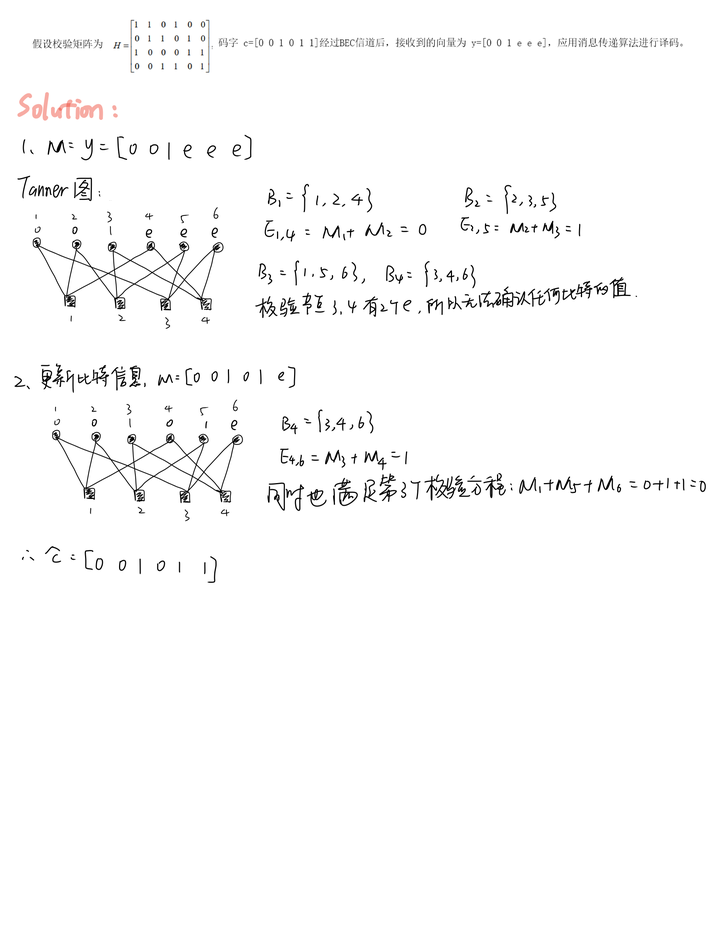 假设校验矩阵为 H= [1 1 0 1 0 0
0 1 1 0 1 0
1 0 0 0 1 1
0 0 1 1 0 1], 码字 c=[0 0 1 0 1 1]经过BEC信道后，接收到的向量为 y=[0 0 1 e e e]，应用消息传递算法进行译码。
Solution:
1、M= y = [0 0 1 e e e]
Tanner图:
1 2 3 4 5 6
0 0 1 e e e
1 2 3 4
B1 = {1, 2, 4} B2 = {2,3,5}
E1,4 = M1+ M2 = 0 E2,5 = M2+M3 = 1
B3 = {1.5, 6}, B4 = {3,4,6}
校验节点 3, 4 有2个e, 所以无法确认任何比特的值.
2、更新比特信息, M=[0 0 1 0 1 e]
1 2 3 4 5 6
0 0 1 0 1 e
1 2 3 4
B4 = {3,4,6}
E4,6 = M3 + M4 = 1
同时也满足第3个校验方程: M1+M5+M6 = 0+1+1=0
∴ ĉ = [0 0 1 0 1 1]